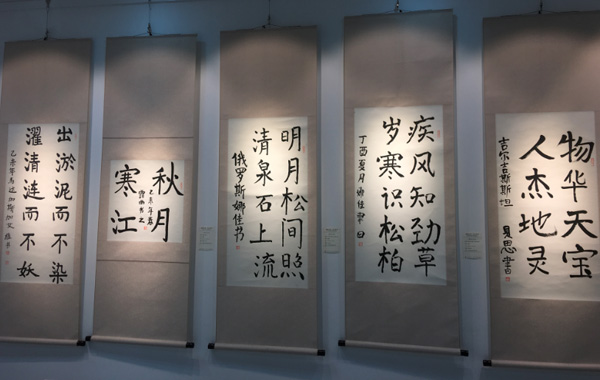 出淤泥而不染
濯清涟而不妖
乙未年马达加斯加
秋月
寒江
明月松间照
清泉石上流
俄罗斯娜佳书
疾风知劲草
岁寒识松柏
丁酉夏月
物华天宝
人杰地灵
吉尔吉斯斯坦